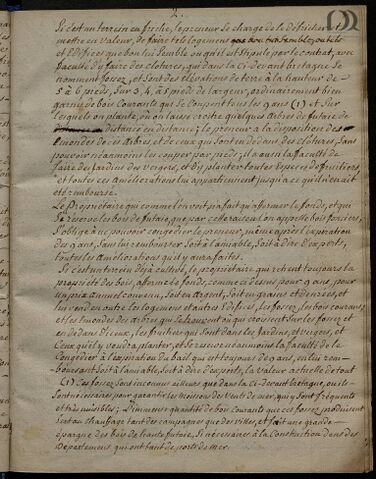 2.
Si c'est un terrein en friche, le preneur se charge de le défricher
mettre en valeur, de faire tels logements
et Edifices que bon lui semble ou qu'il est stipulé par le contrat, avec
faculté d'y faire des clotures, qui dans la ci-devant bretagne se
nomment fossez, et sont des élévations de terre à la hauteur de
5 à 6 pieds, sur 3, 4, à 5 pieds de largeur, ordinairement bien
garnis de bois Courants qui se coupent tous les 9 ans (1) et sur
lesquels on plante, où on laisse croitre quelques arbres de futaie de
distance en distance; le preneur a la disposition des
émondes de ces arbres, et de ceux qui sont en dedans des clotures, sans
pouvoir néanmoins les couper par pieds; il a aussi la faculté de
faire des Jardins des vergers, et d'y planter toutes Especes de fruitiers
et toutes ces Améliorations lui appartiennent jusqu'à ce qu'il en ait
été remboursé.
Le Propriétaire qui comme l'on voit n'a fait qu'affermer le fonds, et qui
se réserve les bois de futaie, que par cette raison l'on appelle bois fonciers,
s'oblige à ne pouvoir congédier le preneur, même après l'expiration
des 9 ans, sans lui rembourser soit à l'amiable, soit à dire d'experts,
toutes les améliorations qu'il y aura faites.
Si c'est un terrein déjà cultivé, le propriétaire qui retient toujours la
propriété des bois, afferme le fonds, comme ci dessus, pour 9 ans, pour
un prix annuel convenu, soit en argent, soit en grains et denrées, et
lui vend en outre les logements et autres Edifices, les fossez, les bois courants
et les émondes des arbres qui se trouvent ou qui croissent sur les fossez et
en dedans d'iceux, les fruitiers qui sont dans les Jardins, et vergers, et
Ceux qu'il y voudra planter, et se réserve néanmoins la faculté de le
Congédier à l'expiration du bail qui est toujours de 9 ans, en lui rem-
boursant soit à l'amiable, soit à dire d'experts, la valeur actuelle de tout
(1) Ces fossez sont inconnus ailleurs que dans la ci-devant bretagne, où ils
sont nécessaires pour garantir les moissons des Vents de mer, qui y sont fréquents
et très nuisibles; l'immense quantité de bois courants que ces fossez produisent
sert au chauffage tant des campagnes que des villes, et fait une grande
épargne des bois de haute futaie, si nécessaires à la Construction dans des
Départemens qui ont tant de ports de mer.